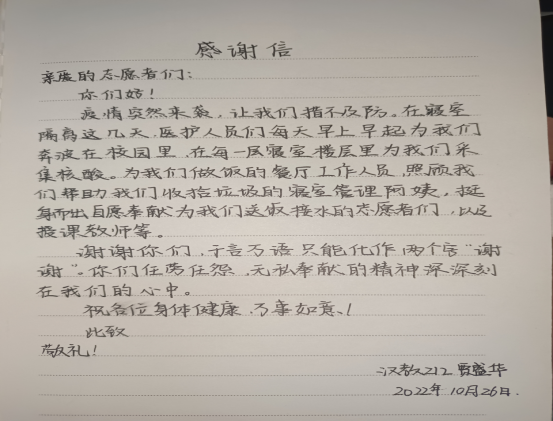 感谢信
亲爱的志愿者们：
你们好！
疫情突然来袭，让我们措不及防。在寝室
隔离这几天，医护人员们每天早上早起为我们
奔波在校园里，在每一层寝室楼层里为我们采
集核酸。为我们做饭的餐厅工作人员，照顾我
们帮助我们收拾垃圾的寝室管理阿姨，挺
身而出自愿奉献为我们送饭接水的志愿者们，以及
授课教师等。
谢谢你们，千言万语只能化作两个字“谢
谢”。你们任劳任怨，无私奉献的精神深深刻
在我们的心中。
祝各位身体健康，万事如意！
此致
敬礼！
汉教212 贾盛华
2022年10月26日.